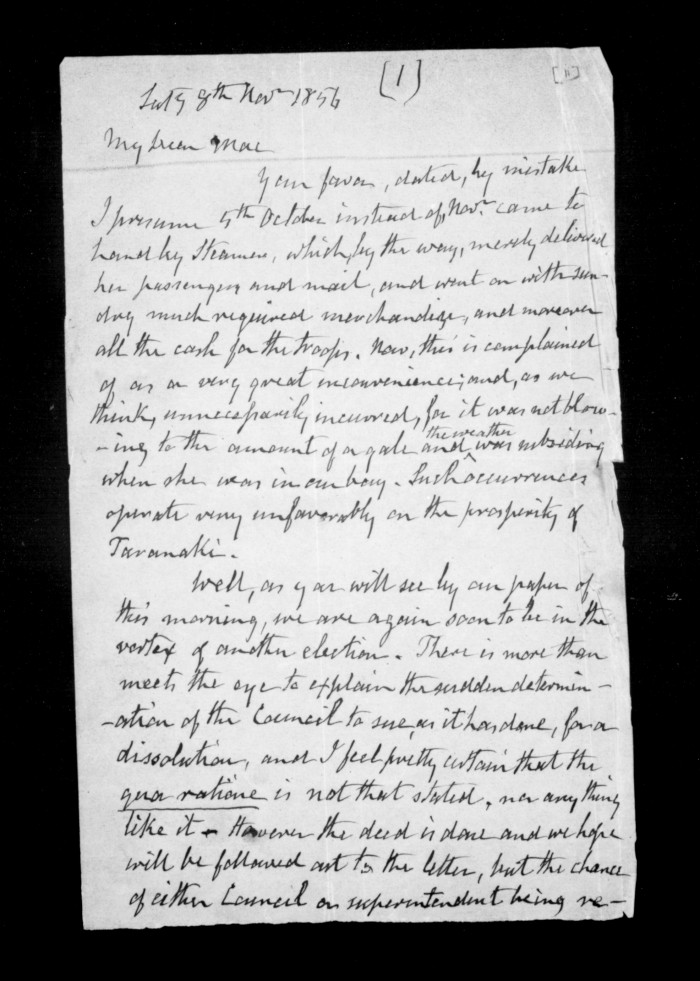 [1]
[ii]
Saty 8th Novr 1856
My dear Mac
Your favor, dated, by mistake
I presume 5th October instead of Novr. came to
hand by Steamer, which, by the way, merely delivered
her passengers and mail, and went on with sun-
dry much required merchandize, and moreover
all the cash for the troops. Now, this is complained
of as a very great inconvenience; and, as we
think, unnecessarily incurred, for it was not blow-
-ing to the amount of a gale and was subsiding
the weather
when she was in our bay. Such occurrences
operate very unfavorably on the prosperity of
Taranaki.
Well, as you will see by our paper of
this morning, we are again soon to be in the
vortex of another election. There is more than
meets the eye to explain the sudden determin-
-ation of the Council to sue, as it has done, for a
dissolution, and I feel pretty certain that the
qua ratione is not that stated, nor any thing
like it. However the deed is done and we hope
will be followed out to the letter, but the chance
of either Council or superintendent being re-